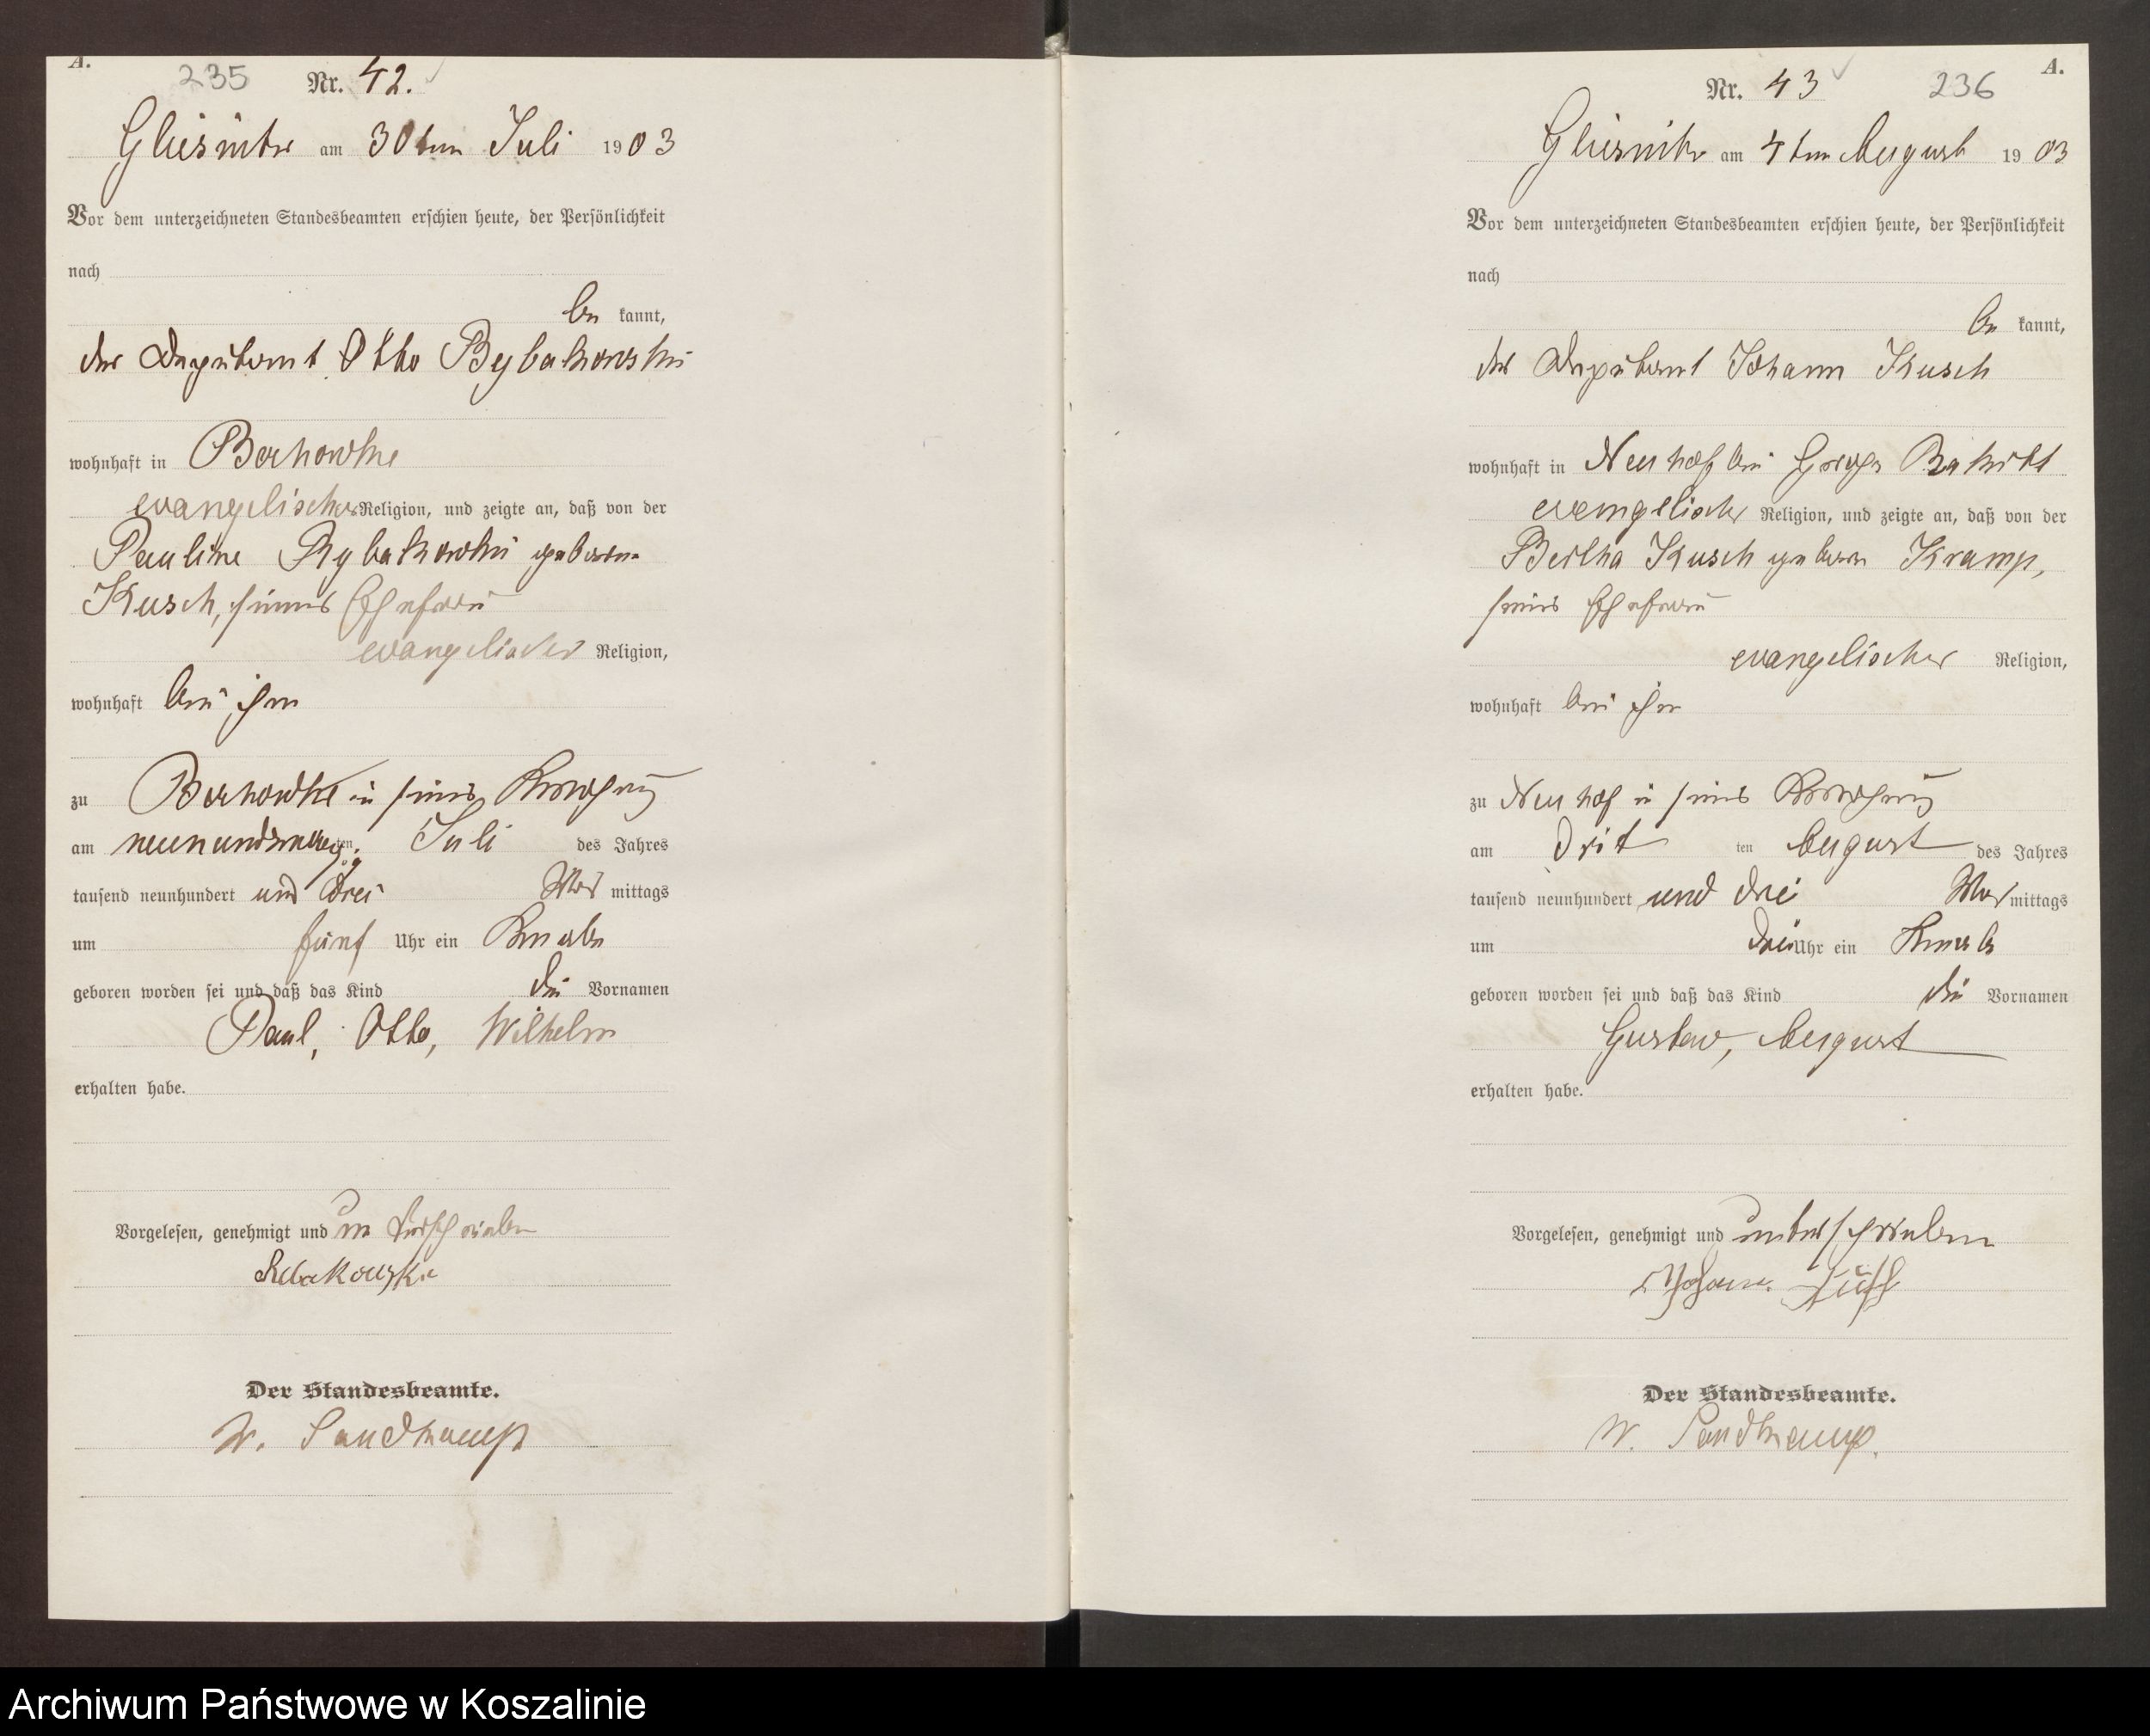 A.
235 Nr. 42.
Gliesnitz am 30ten Juli 1903
Vor dem unterzeichneten Standesbeamten erschien heute, der Persönlichkeit
nach
be kannt,
der Deputant Otto Rybakowski
wohnhaft in
evangelischer Religion, und zeigte an, daß von der
Pauline Rybakowski geborene
Kusch, seiner Ehefrau
evangelischer Religion,
wohnhaft bei ihm
zu in seiner Wohnung
am neunundzwanzigten Juli des Jahres
tausend neunhundert und drei Vor mittags
um fünf Uhr ein Knabe
geboren worden sei und daß das Kind die Vornamen
Paul, Otto, Wilhelm
erhalten habe.
Vorgelesen, genehmigt und unterschrieben
Der Standesbeamte.
W. Sandkamp
A.
Nr. 43 236
Gliesnitz am 4ten August 1903
Vor dem unterzeichneten Standesbeamten erschien heute, der Persönlichkeit
nach
be kannt,
der Deputant Johann Kusch
wohnhaft in Neuhof bei
evangelischer Religion, und zeigte an, daß von der
Bertha Kusch geborene Kramp,
seiner Ehefrau
evangelischer Religion,
wohnhaft bei ihm
zu Neuhof in seiner Wohnung
am Drit ten August des Jahres
tausend neunhundert und drei Vor mittags
um drei Uhr ein Knabe
geboren worden sei und daß das Kind die Vornamen
Gustav, August
erhalten habe.
Vorgelesen, genehmigt und unterschrieben
Johann Kusch
Der Standesbeamte.
W. Sandkamp.
Archiwum Państwowe w Koszalinie